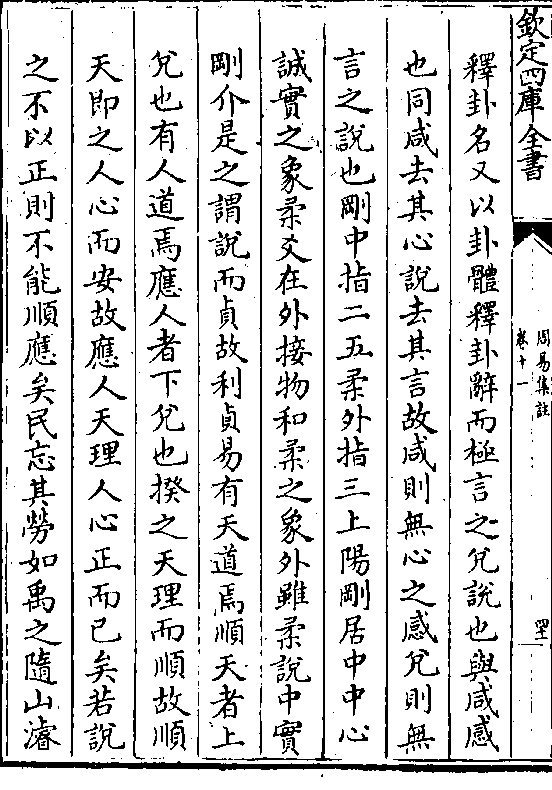 欽定四庫全書
周易集註
卷十一
四十
釋卦名又以卦體釋卦辭而極言之兌說也與咸感
也同咸去其心說去其言故咸則無心之感兌則無
言之說也剛中指二五柔外指三上陽剛居中中心
誠實之象柔爻在外接物和柔之象外雖柔說中實
剛介是之謂說而貞故利貞易有天道焉順天者上
兌也有人道焉應人者下兌也揆之天理而順故順
天即之人心而安故應人天理人心正而已矣若說
之不以正則不能順應矣民忘其勞如禹之隨山濬